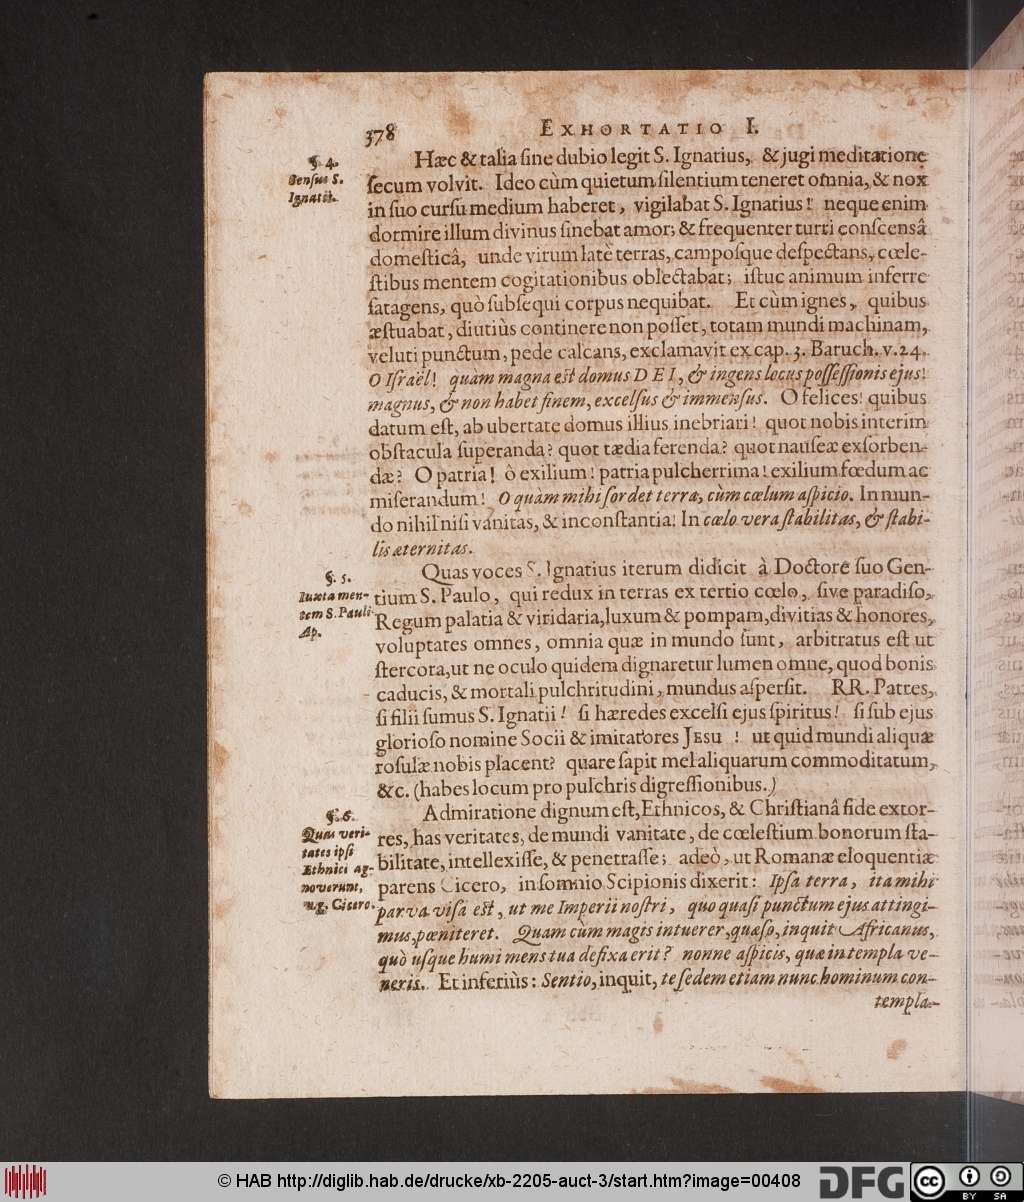 378
EXHORTATIO I.
§. 4.
Sensus S.
Ignatii.
Hæc & talia sine dubio legit S. Ignatius, & jugi meditatione
secum volvit. Ideo cùm quietum silentium teneret omnia, & nox
in suo cursu medium haberet, vigilabat S. Ignatius! neque enim
dormire illum divinus sinebat amor; & frequenter turri conscensâ
domesticâ, unde virum latè terras, camposque despectans, cœle-
stibus mentem cogitationibus oblectabat; istuc animum inferre
satagens, quò subsequi corpus nequibat. Et cùm ignes, quibus
æstuabat, diutiùs continere non posset, totam mundi machinam,
veluti punctum, pede calcans, exclamavit ex cap. 3. Baruch. v. 24.
O Israël! quam magna est domus DEI, & ingens locus possessionis ejus!
magnus, & non habet finem, excelsus & immensus. O felices! quibus
datum est, ab ubertate domus illius inebriari! quot nobis interim
obstacula superanda? quot tædia ferenda? quot nauseæ exsorben-
dæ? O patria! ô exilium! patria pulcherrima! exilium fœdum ac
miserandum! O quàm mihi sordet terra, cùm cœlum aspicio. In mun-
do nihil nisi vanitas, & inconstantia! In cœlo vera stabilitas, & stabi-
lis æternitas.
§. 5.
Iuxta men-
tem S. Pauli
Ap.
Quas voces S. Ignatius iterum didicit à Doctore suo Gen-
tium S. Paulo, qui redux in terras ex tertio cœlo, sive paradiso,
Regum palatia & viridaria, luxum & pompam, divitias & honores,
voluptates omnes, omnia quæ in mundo sunt, arbitratus est ut
stercora, ut ne oculo quidem dignaretur lumen omne, quod bonis
caducis, & mortali pulchritudini, mundus aspersit. RR. Patres,
si filii sumus S. Ignatii! si hæredes excelsi ejus spiritus! si sub ejus
glorioso nomine Socii & imitatores JESU ! ut quid mundi aliquæ
rosulæ nobis placent? quare sapit mel aliquarum commoditatum,
&c. (habes locum pro pulchris digressionibus.)
§. 6.
Quas veri-
tates ipsi
Ethnici ag-
noverunt,
v.g. Cicero.
Admiratione dignum est, Ethnicos, & Christianâ fide extor-
res, has veritates, de mundi vanitate, de cœlestium bonorum sta-
bilitate, intellexisse, & penetrasse; adeò, ut Romanæ eloquentiæ
parens Cicero, in somnio Scipionis dixerit: Ipsa terra, ita mihi
parva visa est, ut me Imperii nostri, quo quasi punctum ejus attingi-
mus, pœniteret. Quam cùm magis intuerer, quæso, inquit Africanus,
quò usque humi mens tua defixa erit? nonne aspicis, quæ in templa ve-
neris. Et inferiùs: Sentio, inquit, te sedem etiam nunc hominum con-
templa-
© HAB http://diglib.hab.de/drucke/xb-2205-auct-3/start.htm?image=00408
DFG
cc
BY
SA